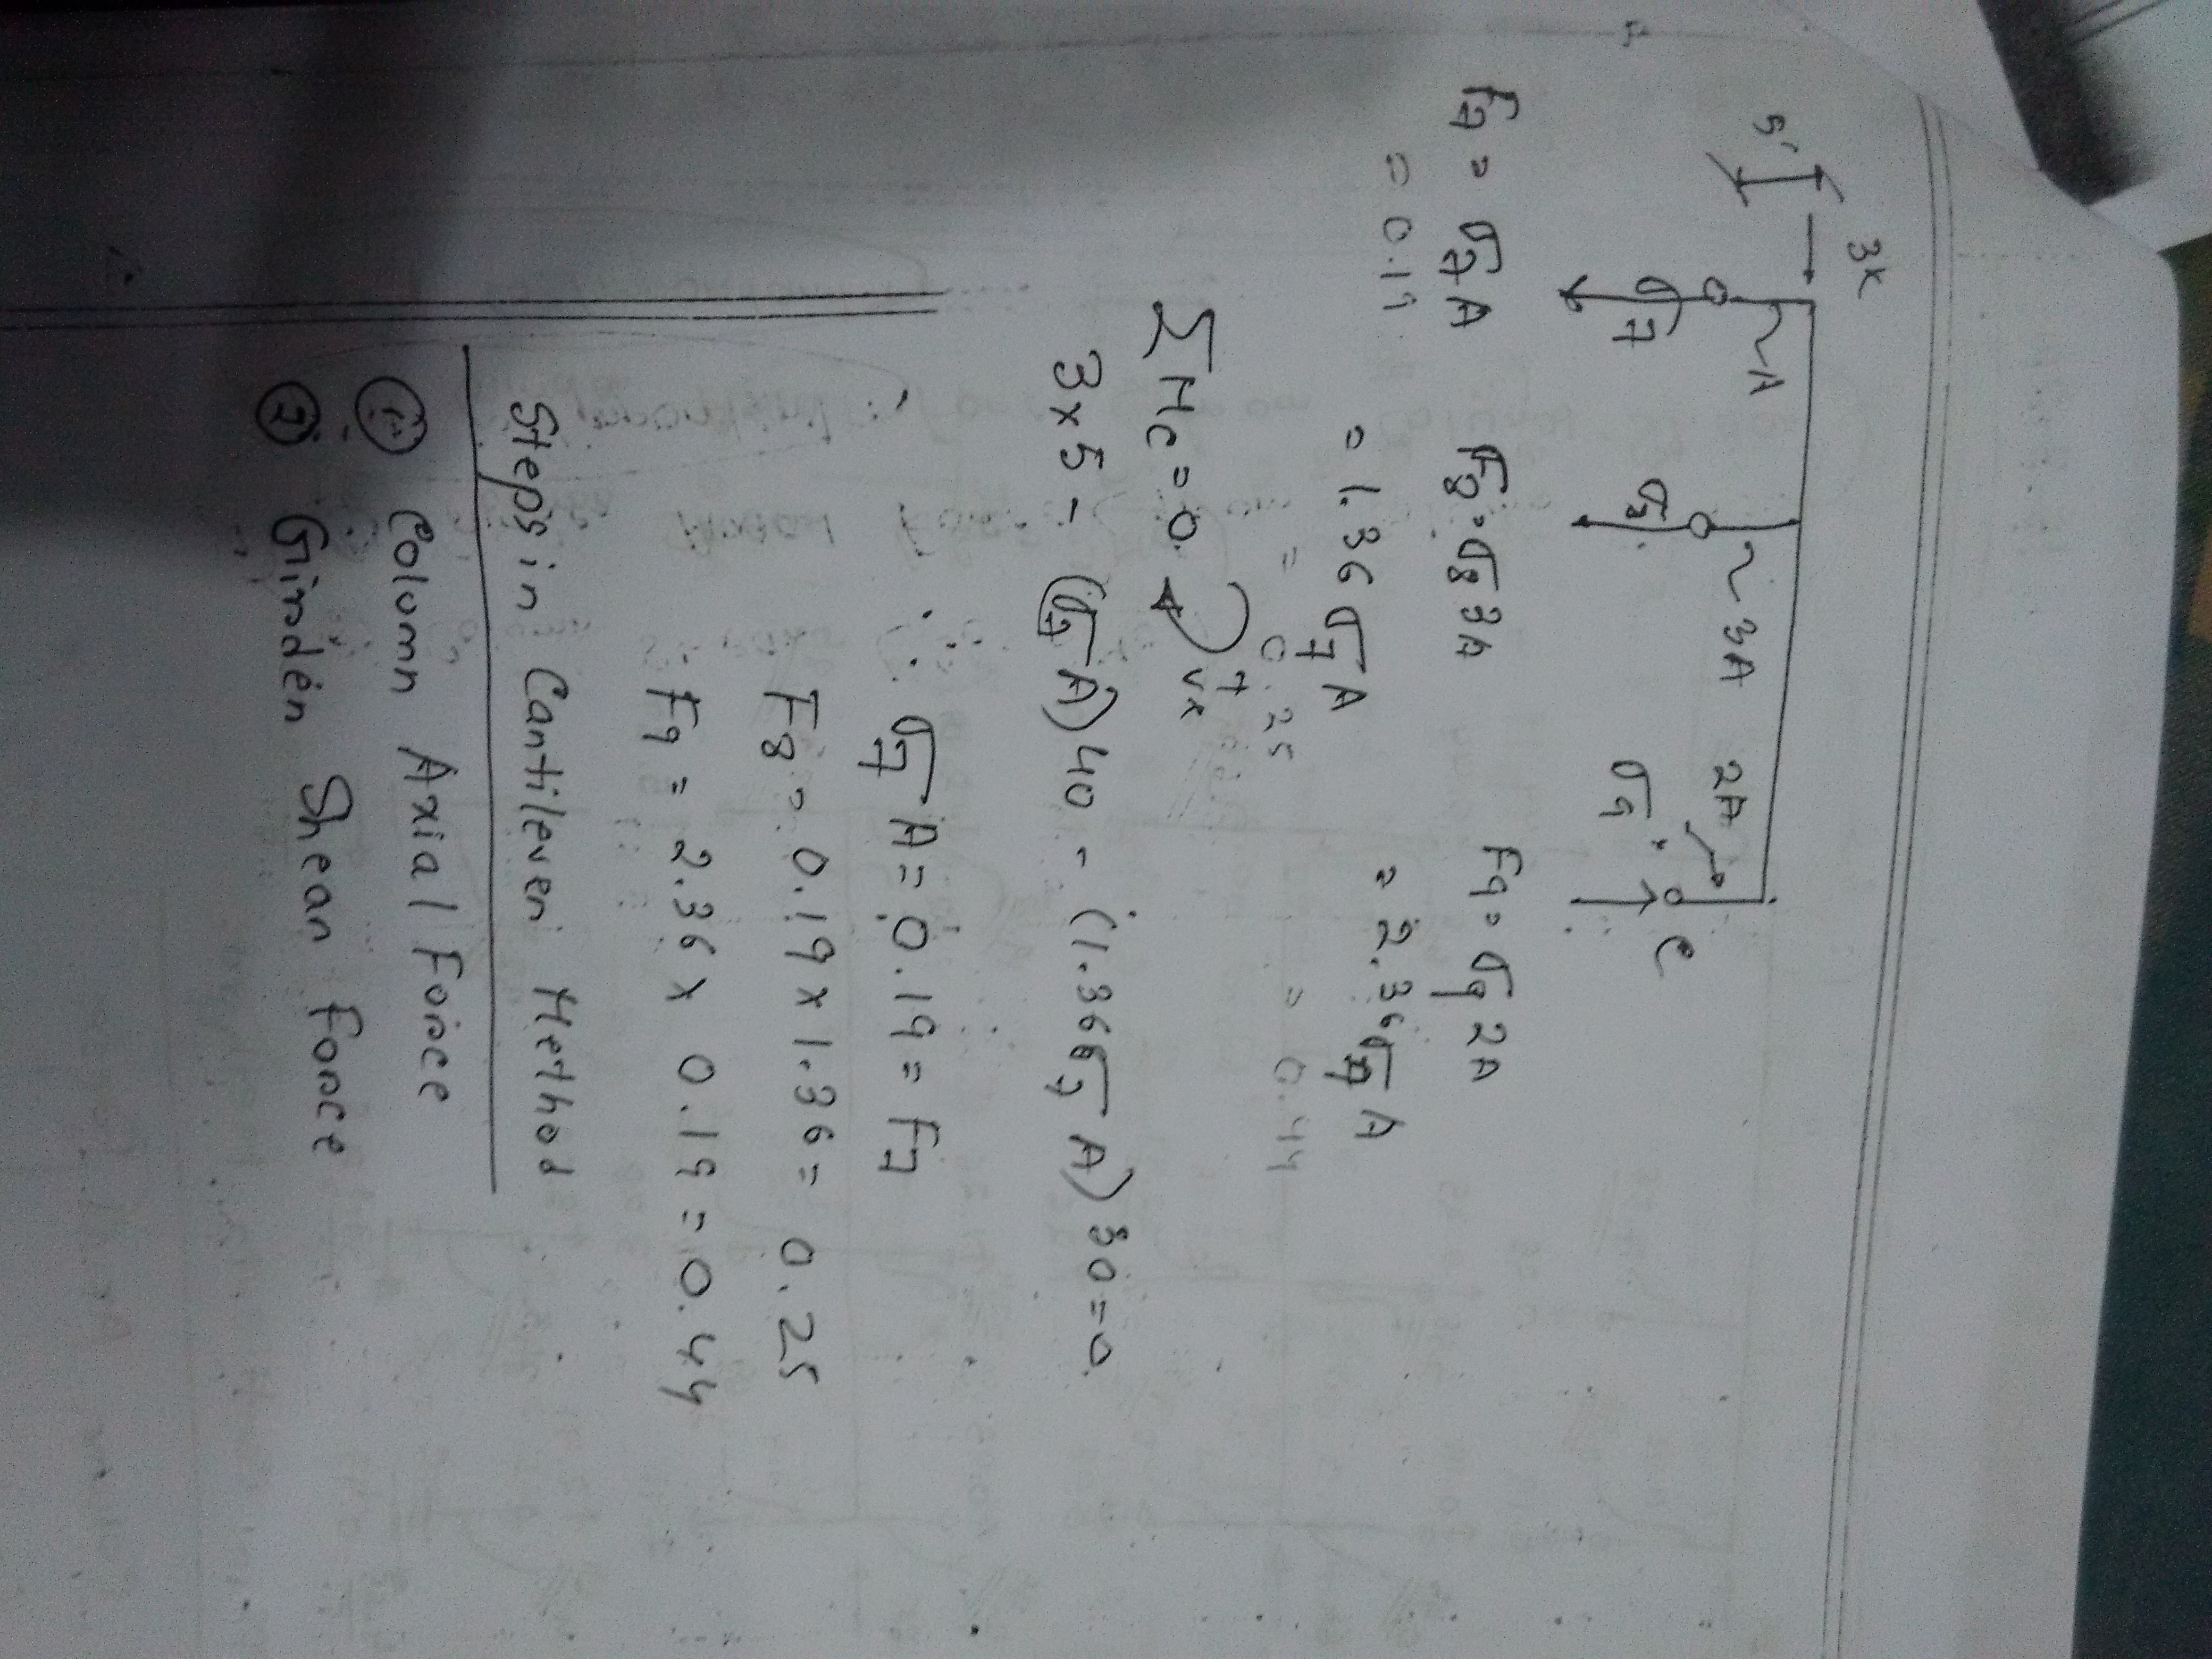 3K
5'
A
3A
2A
σ7
σ8
σ9
C
F7 = σ7A
= 0.19
F8 = σ8 3A
= 1.36 σ7A
= 0.25
F9 = σ9 2A
= 2.36 σ7 A
= 0.44
ΣMc = 0 +ve
3x5 - (σ7A)40 - (1.36σ7A)30 = 0
∴ σ7A = 0.19 = F7
F8 = 0.19 x 1.36 = 0.25
F9 = 2.36 x 0.19 = 0.44
Steps in Cantilever Method
① Column Axial Force
② Girder Shear Force